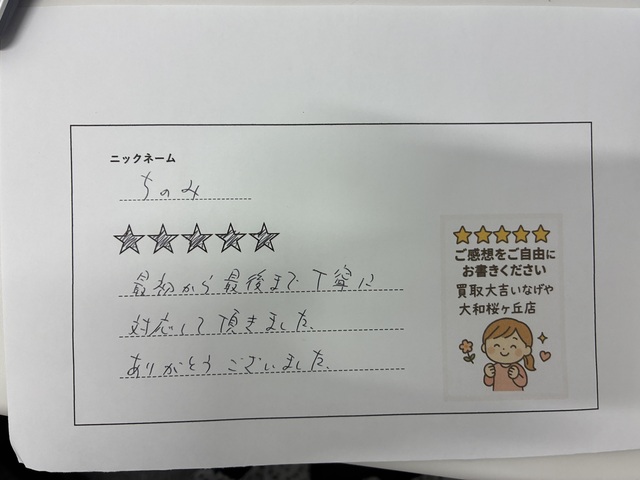 ニックネーム
ちのみ
最初から最後まで丁寧に
対応して頂きました。
ありがとうございました。
ご感想をご自由に
お書きください
買取大吉いなげや
大和桜ヶ丘店